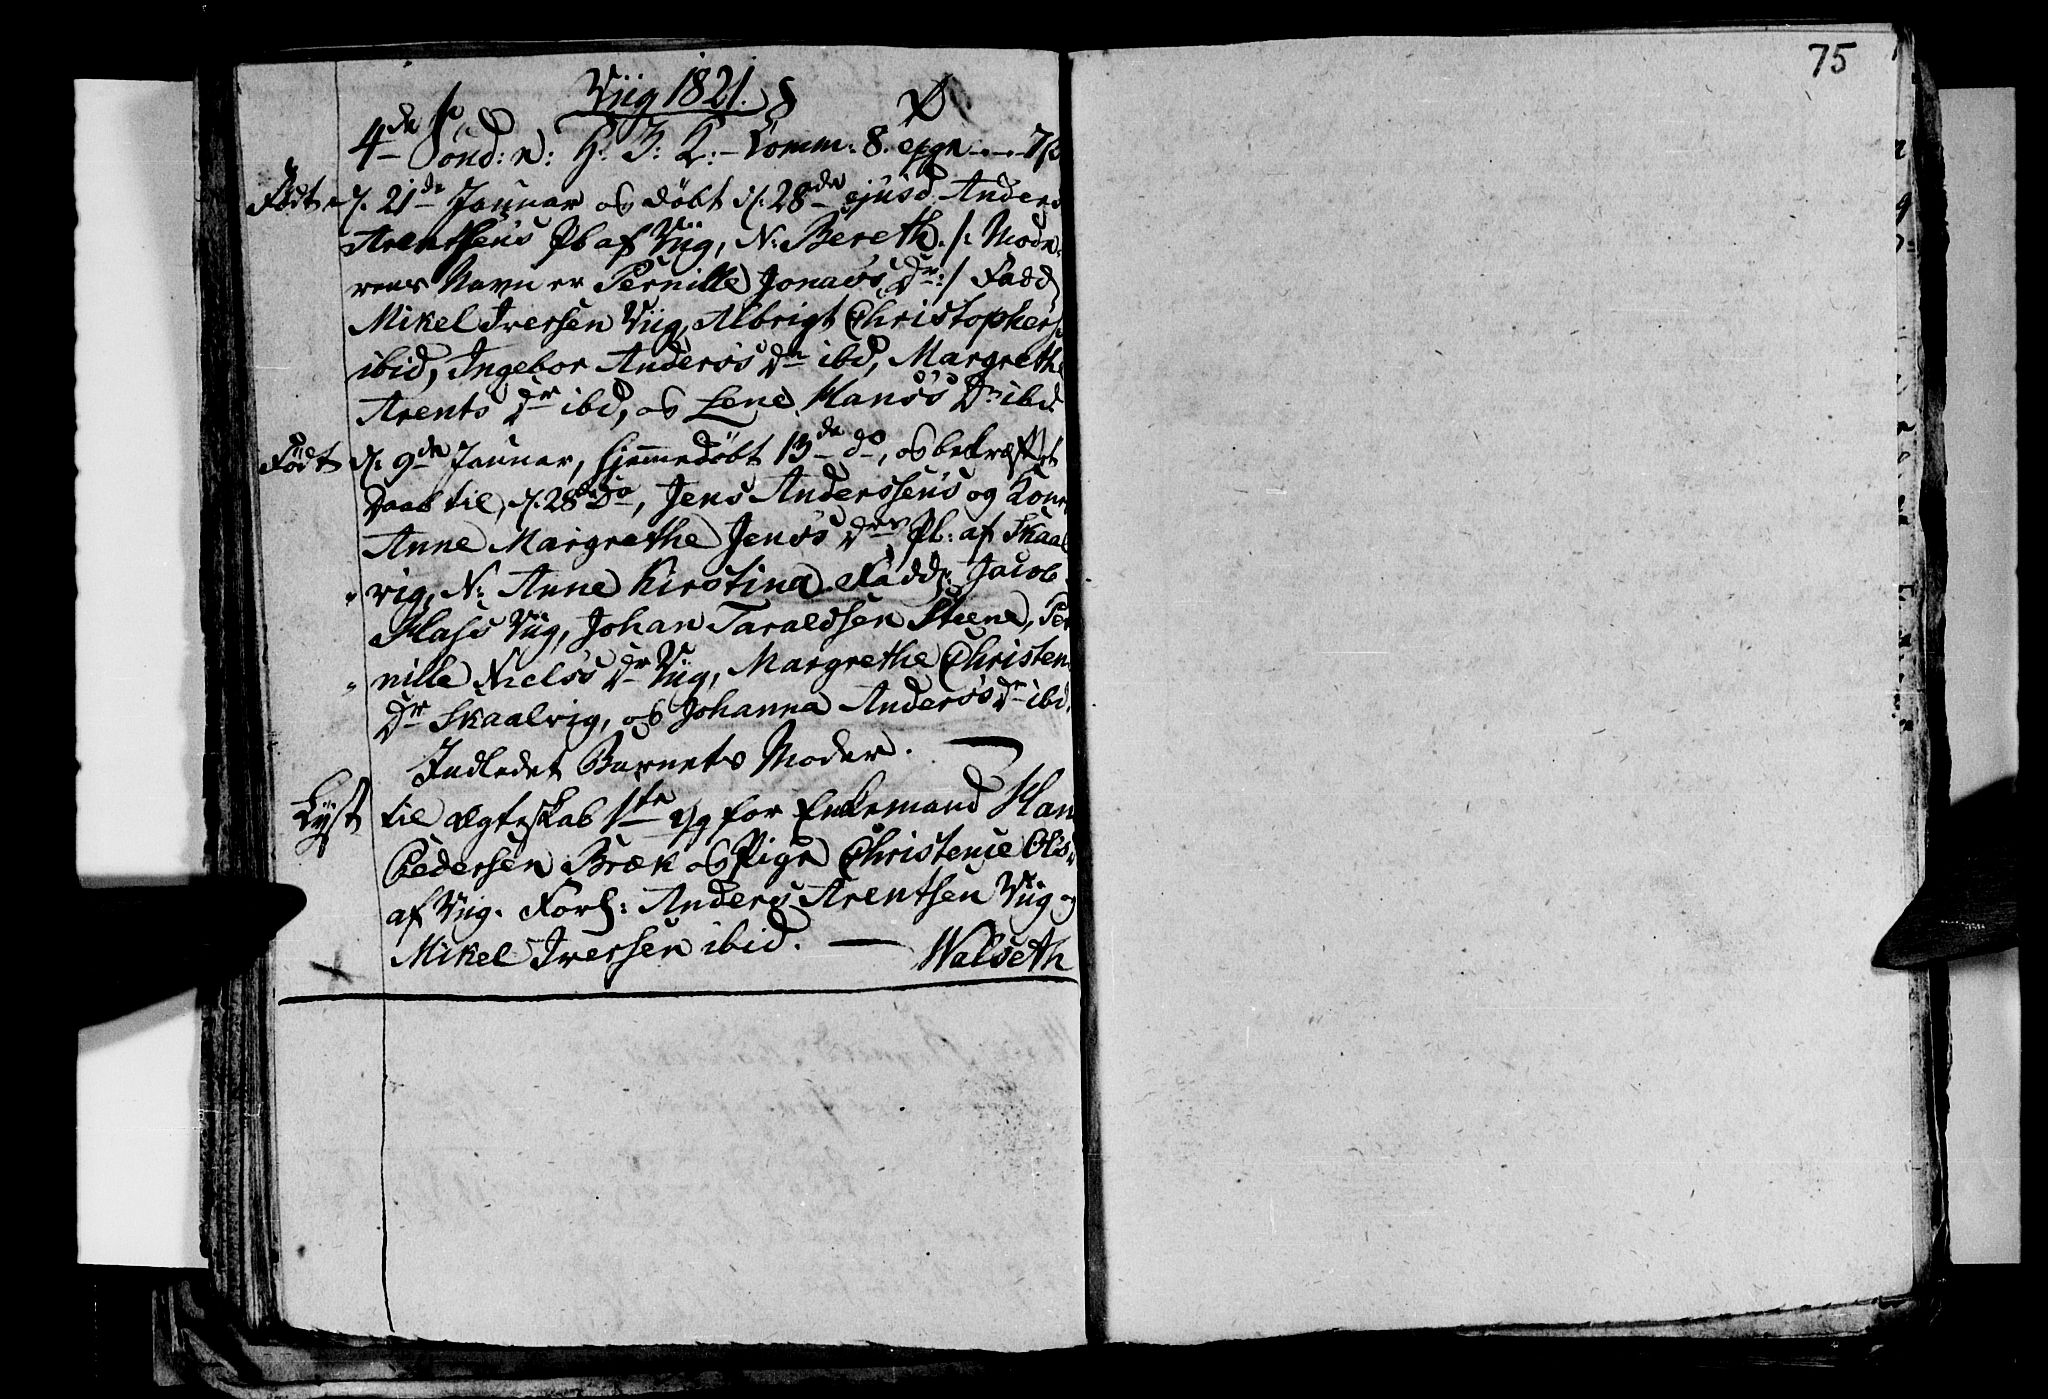 75
Viig 1821.
4de Sønd: n: H. 3: K:– Comm: 8.
Født d. 21de Januar og døbt d. 28de ejusd Anders
Arentsens Pb af Viig, N: Bereth /: Mode-
rens Navn er Pernille Jonæs Dr:/ Fadd
Mikel Iversen Viig, Albrigt Christophers
ibid, Ingebor Anders's Dr ibd, Margrethe
Arents Dr ibd, og Lene Hans's Dr ibd.
Født d. 9de Januar, hjemmedøbt 13de do, og bekræftet
Daab til, d. 28de Do, Jens Anderssens og Kone
Anne Margrethe Jens's Drs Pb: af Skaal
vig, N: Anne Kirstina Fadd: Jacob
Hass Viig, Johan Taraldsen Steene, Per
nille Niels's Dr Viig, Margrethe Christen
Dr Skaalvig, og Johanna Anders's Dr ibd.
Indledet Barnets Moder.
Lyst til ægteskab 1ste g for Enkemand Han
Pedersen Bræk og Pige Christence Ols
af Viig. Forl: Anders Arentsen Viig og
Mikel Iversen ibid. — Walseth